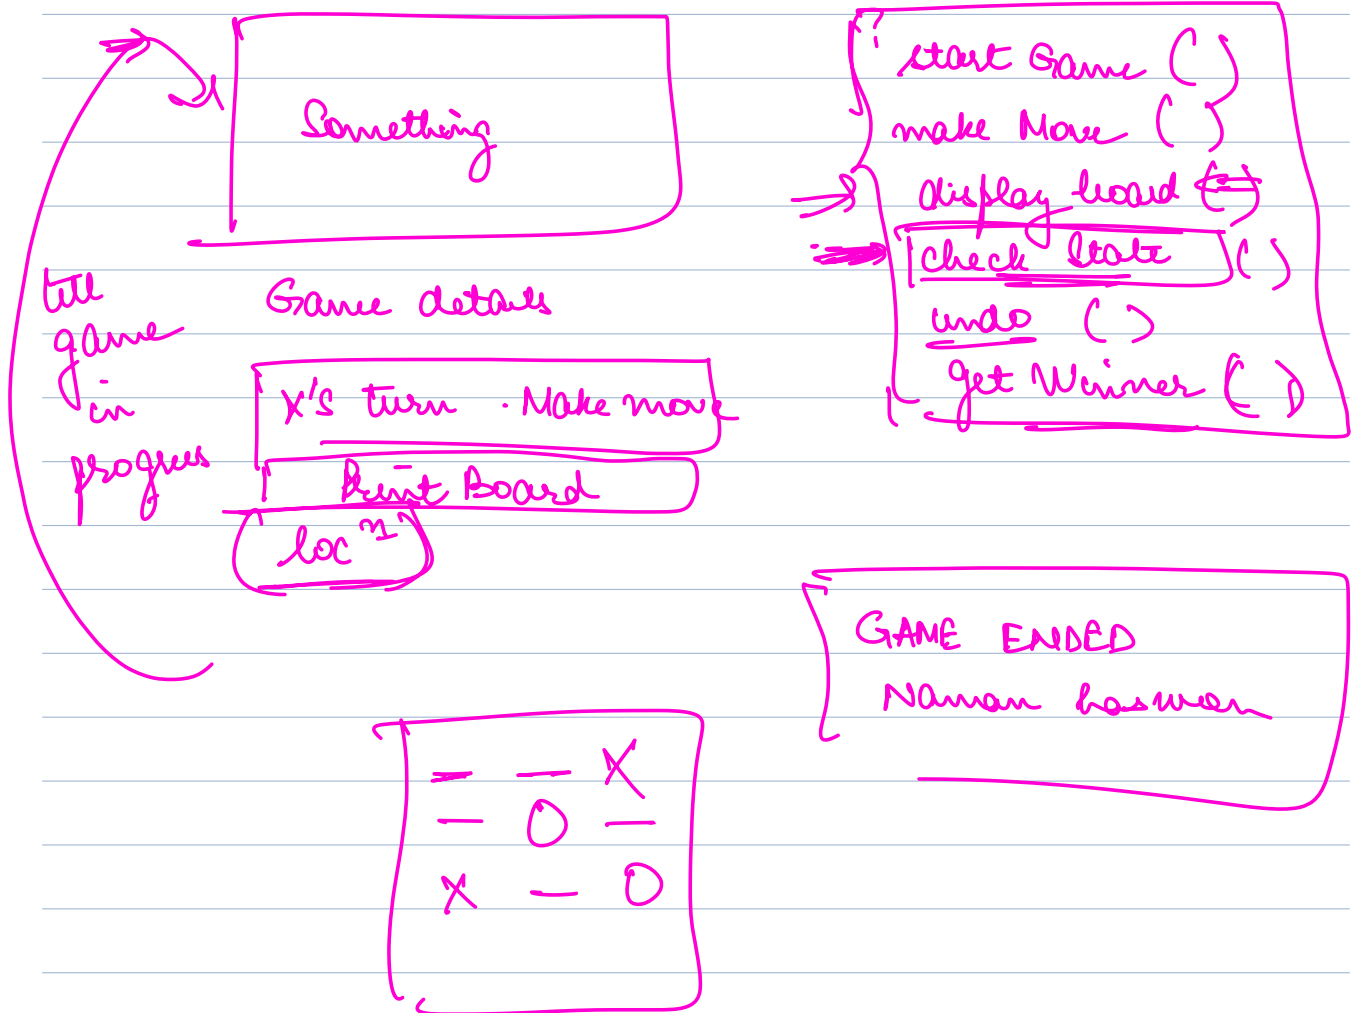 Something
till
game
in
progress
Game details
X's turn . Make move
Print Board
locⁿ
?
start Game ( )
make Move ( )
display board ( )
check State ( )
undo ( )
get Winner ( )
GAME ENDED
Naman has won
— — X
— O —
X — O